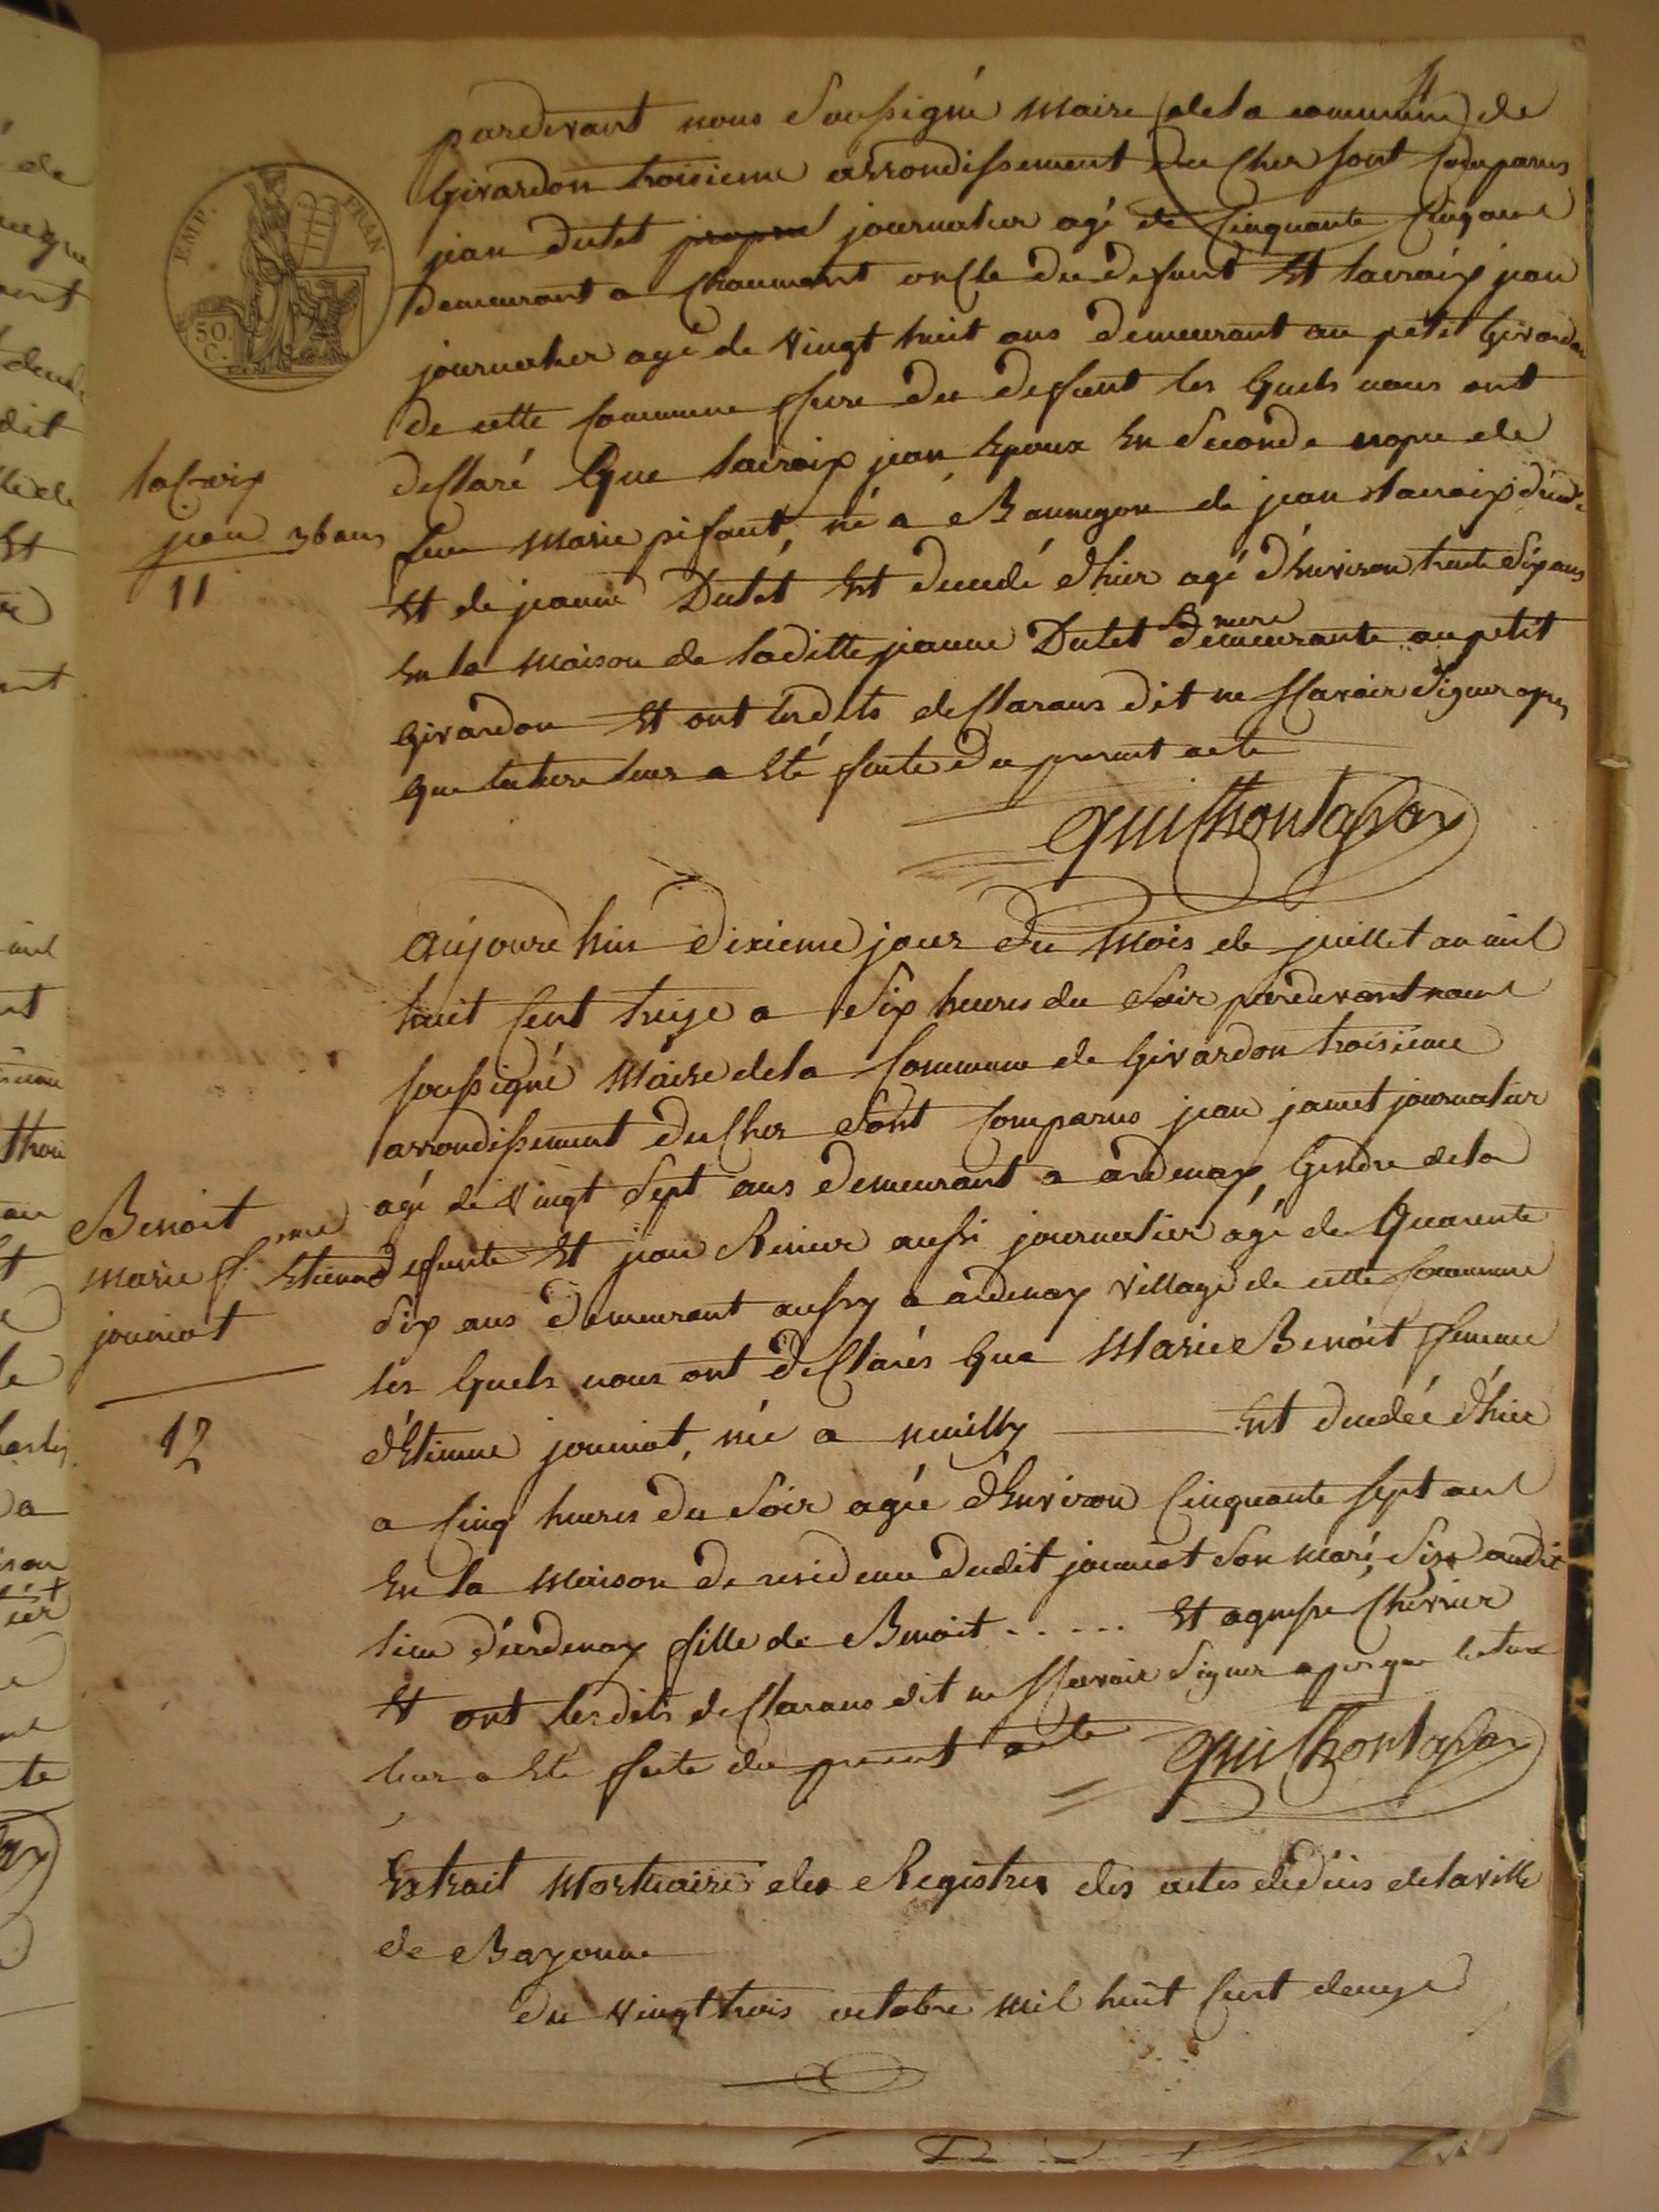 4
EMP. FRAN
50 C.
pardevant nous soussigné maire dela commune de
Givardon troisieme arrondissement du Cher sont Comparus
jean dutet journalier agé de Cinquante Cinq ans
demeurant a Chaumont oncle du defunt Et lacroix jean
journalier agé de vingt huit ans demeurant au petit Givardon
de cette Commune frere du defunt les quels nous ont
desclaré que lacroix jean Epoux En seconde nopce de
feue marie pifaut, né a Bannegon de jean lacroix décedé
Et de jeanne Dutet Est decedé d'hier agé d'Environ trente six ans
En la maison de laditte jeanne Dutet sa mere demeurante au petit
Givardon Et ont lesdits desclarans dit ne sçavoir signer apres
que lecture leur a Eté faite du present acte
Guithontapax
lacroix
jean 36 ans
11
aujourd'huis dixieme jour du mois de juillet an mil
huit Cent treize a six heures du soir pardevant nous
soussigné maire dela Commune de Givardon troisieme
arrondissement du Cher sont Comparus jean jamet journalier
agé de vingt sept ans demeurant a ardenay, Gendre dela
defunte Et jean Renier aussi journalier agé de quarente
six ans demeurant aussy a ardenay village de cette Commune
les quels nous ont desclarés que Marie Benoit femme
d'Etienne jouniot, née a neuilly Est decedée d'hier
a Cinq heures du soir agée d'Environ Cinquante sept ans
En la maison de residence dudit jouniot son mari, sise audit
lieu d'ardenay fille de Benoit ..... Et agnesse Cherrier
Et ont lesdits desclarans dit ne sçavoir signer apres que lecture
leur a Eté faite du present acte Guithontapax
Benoit
marie fme Etienne
jouniot
12
Extrait Mortuaire des Registres des actes de décès dela ville
de Bayonne
du vingt trois octobre mil huit Cent douze